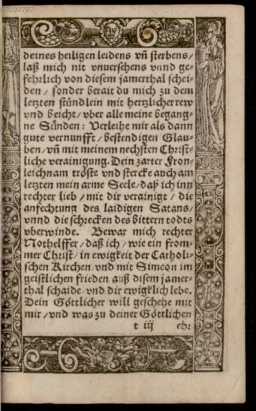 deines heiligen leidens vñ sterbens/
laß mich nit vnuersehens vnd ge-
fehrlich von diesem jamerthal schei-
den / sonder berait du mich zu dem
letzten stündlein mit hertzlicher rew
vnd beicht / vber alle meine begang-
ne Sünden: Verleihe mir als dann
gute vernunfft / bestendigen Glau-
ben / vñ mit meinem nechsten Christ-
liche verainigung. Dein zarter Fron-
leichnam tröste vnd stercke auch am
letzten mein arme Seele / daß ich inn
rechter lieb / mit dir verainigt / die
anfechtung des laidigen Satans/
vnnd die schrecken des bittern todts
vberwinde. Bewar mich rechter
Nothelffer / daß ich / wie ein from-
mer Christ / in ewigkeit der Catholi-
schen Kirchen vnd mit Simeon im
geistlichen frieden auß disem jamer-
thal schaide vnd dir ewigklich lebe.
Dein Göttlicher will geschehe mit
mir / vnd was zu deiner Göttlichen
t iij ehr